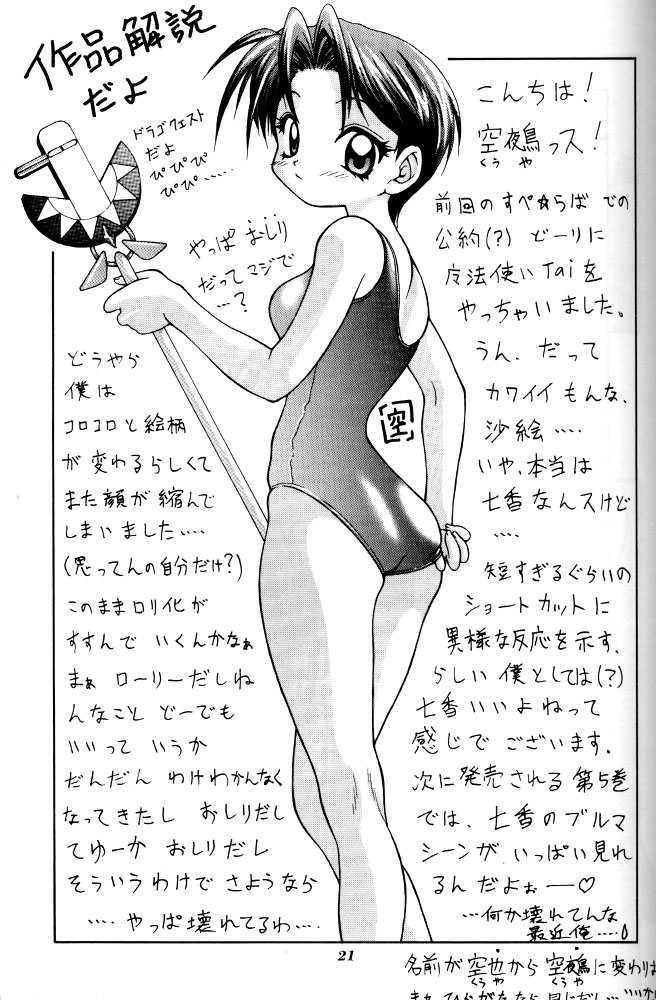 作品解説
だよ
ドラゴクエスト
だよ
ぴぴぴ
ぴぴ……
やっぱ おしり
だってマジで
…?
こんちは!
空鵺っス!
くう や
前回のすぺ☆らば での
公約(?) どーりに
魔法使いTaiを
やっちゃいました。
うん、だって
カワイイもんな、
沙絵….
いや、本当は
七香なんスけど
….
短すぎるぐらいの
ショートカットに
異様な反応を示す、
らしい 僕としては(?)
七香いいよねって
感じで ございます。
次に発売される 第5巻
では、七香のブルマ
シーンが いっぱい見れ
るんだよぉー♡
…何か壊れてんな
最近俺….
空
どうやら
僕は
コロコロと絵柄
が変わるらしくて
また顔が縮んで
しまいました….
(思ってんの自分だけ?)
このままロリ化が
すすんで いくんかなぁ
まぁ ローリーだしね
んなこと どーでも
いいって いうか
だんだん わけわかんなく
なってきたし おしりだし
てゆーか おしりだし
そういうわけで さようなら
…. やっぱ壊れてるわ….
21
名前が空也から空鵺に変わりま
くうや くうや